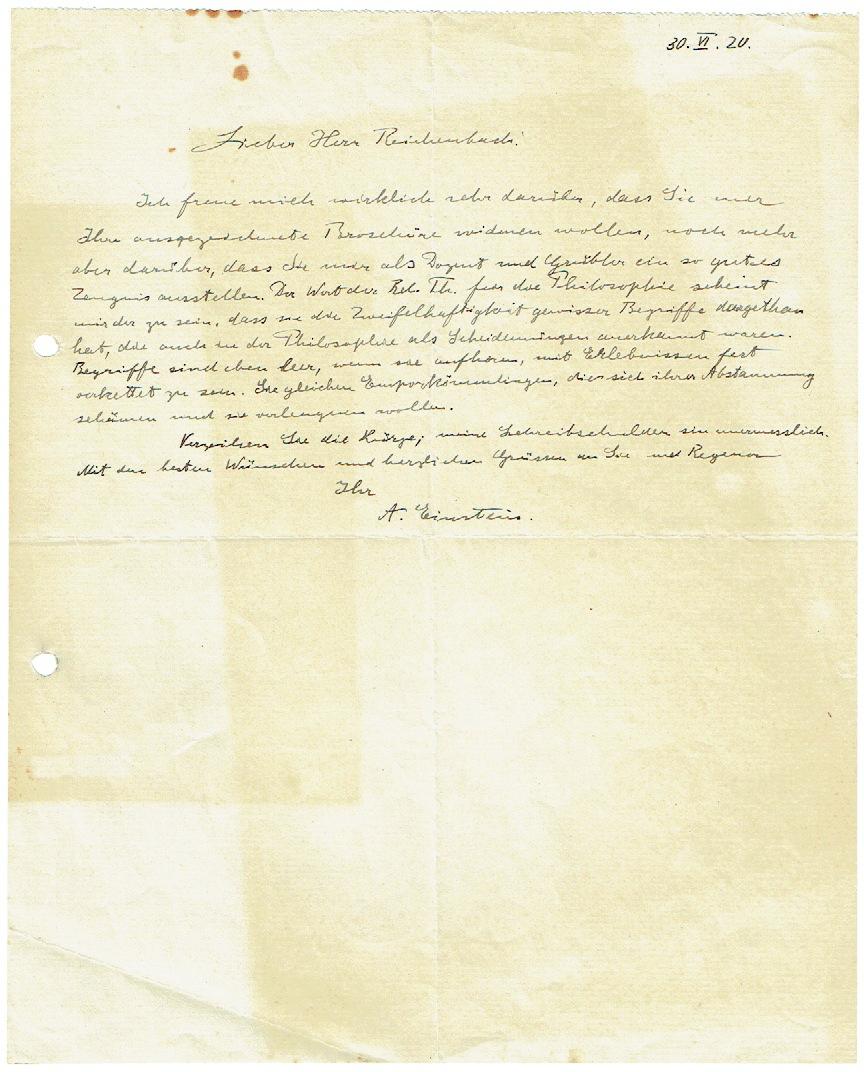 30. VI. 20.
Lieber Herr Reichenbach!
Ich freue mich wirklich sehr darüber, dass Sie mir
Ihre ausgezeichnete Broschüre widmen wollen, noch mehr
aber darüber, dass Sie mir als Dozent und Grübler ein so gutes
Zeugnis ausstellen. Der Wert der Rel. Th. für die Philosophie scheint
mir der zu sein, dass sie die Zweifelhaftigkeit gewisser Begriffe dargethan
hat, die auch in der Philosophie als Scheidemünzen anerkannt waren.
Begriffe sind eben leer, wenn sie aufhören, mit Erlebnissen fest
verkettet zu sein. Sie gleichen Emporkömmlingen, die sich ihrer Abstammung
schämen und sie verleugnen wollen.
Verzeihen Sie die Kürze; meine Schreibschulden sin unermesslich.
Mit den besten Wünschen und herzlichen Grüssen an Sie und Regener
Ihr
A. Einstein.